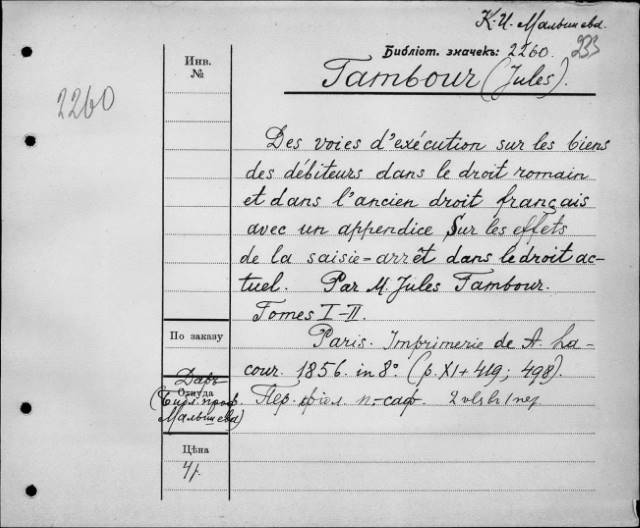 К. И. Малышева.
Библіот. значекъ: 2260. 233
2260
Инв.
№
Tambour (Jules).
Des voies d'exécution sur les biens
des débiteurs dans le droit romain
et dans l'ancien droit français
avec un appendice Sur les effets
de la saisie-arrêt dans le droit ac-
tuel. Par M. Jules Tambour.
Tomes I-II.
По заказу
Paris. Imprimerie de A. La-
cour. 1856. in 8° (p. XI + 419; 498).
Даръ
Откуда
(Библ. проф.
Малышева)
Пер. фіол. п.-саф.
Цѣна
4 р.